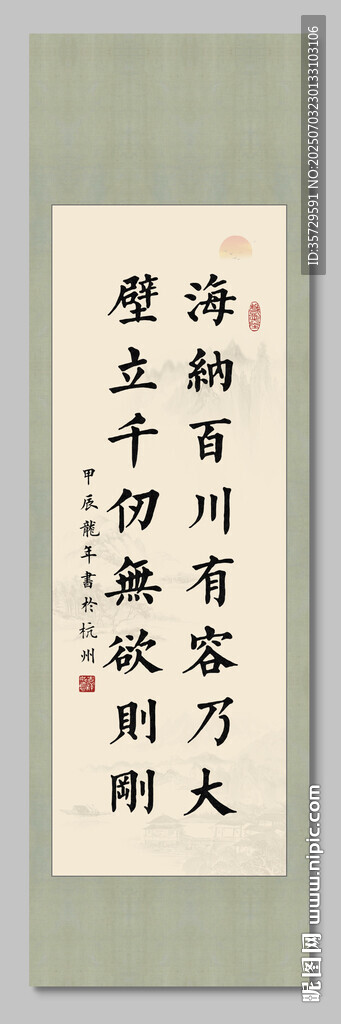 海納百川有容乃大
壁立千仞無欲則剛
甲辰龍年書於杭州
ID:35729591 NO:20250703230133103106
昵图网 www.nipic.com